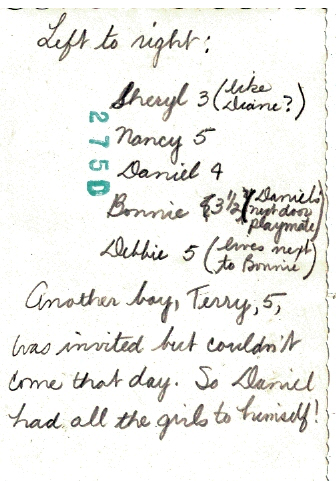 Left to right:
Sheryl 3 (like Diane?)
Nancy 5
Daniel 4
Bonnie 3½ (Daniel's next door playmate)
Debbie 5 (lives next to Bonnie)
Another boy, Terry, 5,
was invited but couldn't
come that day. So Daniel
had all the girls to himself!
2750